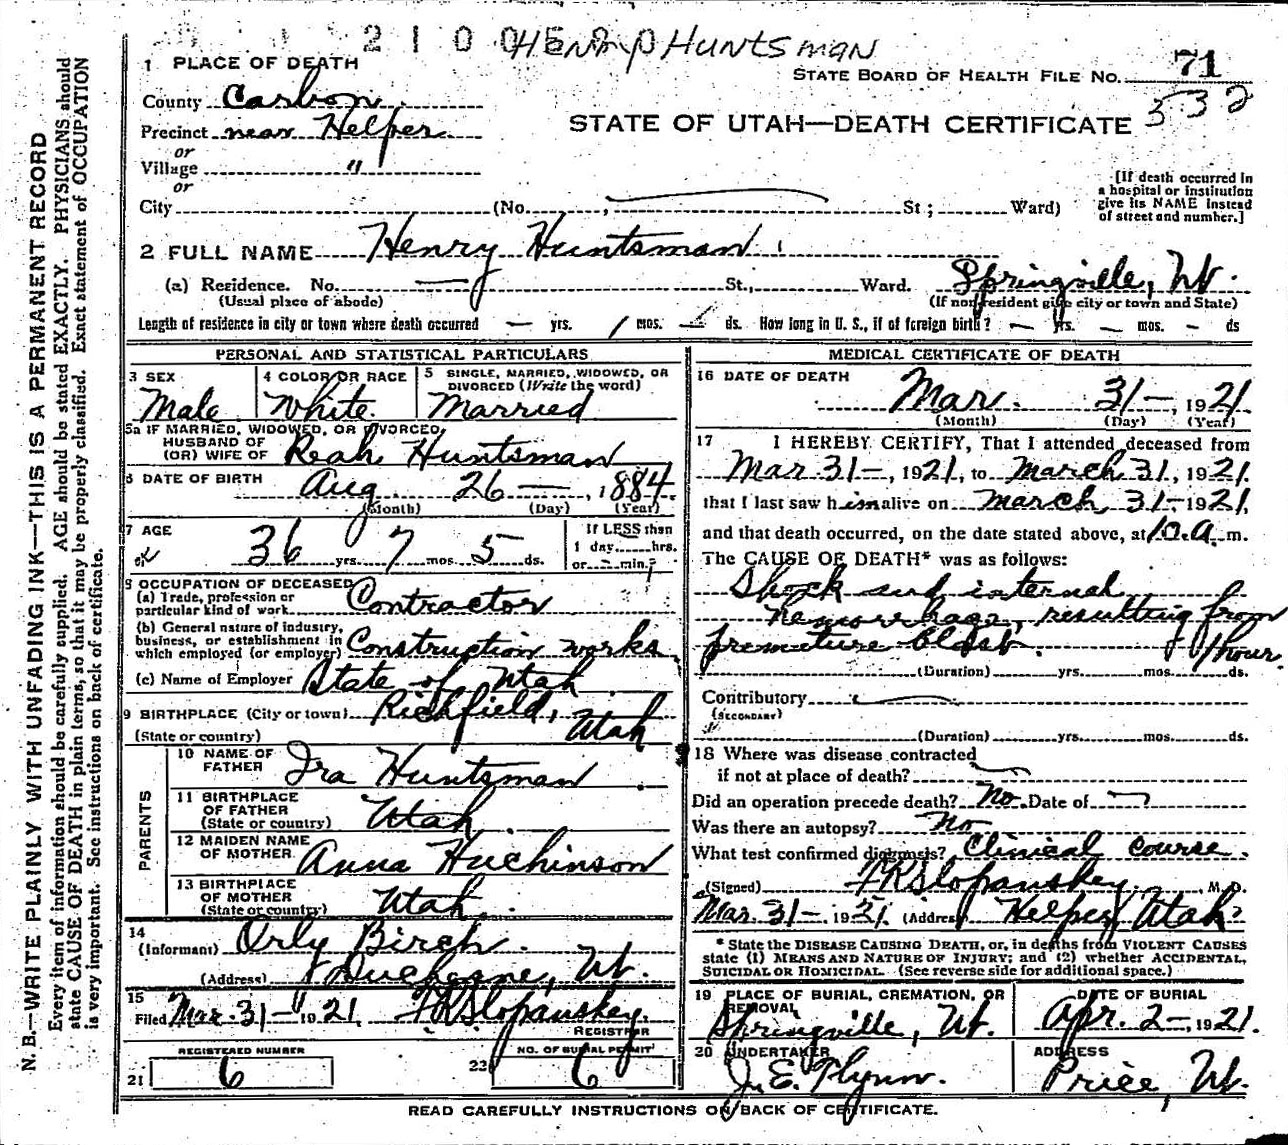 2 1 0 0 5 2 0 Henry Huntsman
1 PLACE OF DEATH
STATE BOARD OF HEALTH FILE NO. 71
532
County Carbon
Precinct near Helper
or
Village "
or
City (No. , St; Ward)
STATE OF UTAH—DEATH CERTIFICATE
[If death occurred in
a hospital or institution
give its NAME instead
of street and number.]
2 FULL NAME Henry Huntsman
(a) Residence. No. — St., Ward. Springville, Ut.
(Usual place of abode) (If non-resident give city or town and State)
Length of residence in city or town where death occurred — yrs. 1 mos. — ds. How long in U. S., if of foreign birth? — yrs. — mos. - ds
PERSONAL AND STATISTICAL PARTICULARS
3 SEX
Male
4 COLOR OR RACE
White
5 SINGLE, MARRIED, WIDOWED, OR
DIVORCED (Write the word)
Married
5a IF MARRIED, WIDOWED, OR DIVORCED,
HUSBAND OF
(OR) WIFE OF Reah Huntsman
6 DATE OF BIRTH Aug. 26 —, 1884
(Month) (Day) (Year)
7 AGE
36 yrs. 7 mos. 5 ds.
If LESS than
1 day hrs.
or - min.
8 OCCUPATION OF DECEASED
(a) Trade, profession or
particular kind of work Contractor
(b) General nature of industry,
business, or establishment in
which employed (or employer) Construction works
(c) Name of Employer State of Utah
9 BIRTHPLACE (City or town) Richfield,
(State or country) Utah
PARENTS
10 NAME OF
FATHER Ira Huntsman
11 BIRTHPLACE
OF FATHER
(State or country) Utah
12 MAIDEN NAME
OF MOTHER Anna Huchinson
13 BIRTHPLACE
OF MOTHER
(State or country) Utah
14
(Informant) Orly Birch
(Address) Duchesne, Ut.
15
Filed Mar. 31— 1921 F R Slopanskey
REGISTRAR
REGISTERED NUMBER
21 6
NO. OF BURIAL PERMIT
22 6
MEDICAL CERTIFICATE OF DEATH
16 DATE OF DEATH
Mar. 31—, 1921
(Month) (Day) (Year)
17 I HEREBY CERTIFY, That I attended deceased from
Mar 31—, 1921, to March 31, 1921
that I last saw him alive on March 31— 1921,
and that death occurred, on the date stated above, at 10.a. m.
The CAUSE OF DEATH* was as follows:
Shock and internal
hemorrhage, resulting from
premature blast. 1 hour
(Duration) yrs. mos. ds.
Contributory
(SECONDARY)
(Duration) yrs. mos. ds.
18 Where was disease contracted
if not at place of death?
Did an operation precede death? No. Date of —
Was there an autopsy? No
What test confirmed diagnosis? Clinical Course.
(Signed) F R Slopanskey, M.D.
Mar. 31— 1921 (Address) Helper, Utah
* State the DISEASE CAUSING DEATH, or, in deaths from VIOLENT CAUSES
state (1) MEANS AND NATURE OF INJURY; and (2) whether ACCIDENTAL,
SUICIDAL OR HOMICIDAL. (See reverse side for additional space.)
19 PLACE OF BURIAL, CREMATION, OR
REMOVAL
Springville, Ut.
DATE OF BURIAL
Apr. 2—, 1921
20 UNDERTAKER
J. E. Flynn.
ADDRESS
Price, Ut.
READ CAREFULLY INSTRUCTIONS ON BACK OF CERTIFICATE.
N. B.—WRITE PLAINLY WITH UNFADING INK—THIS IS A PERMANENT RECORD
Every item of information should be carefully supplied. AGE should be stated EXACTLY. PHYSICIANS should
state CAUSE OF DEATH in plain terms, so that it may be properly classified. Exact statement of OCCUPATION
is very important. See instructions on back of certificate.